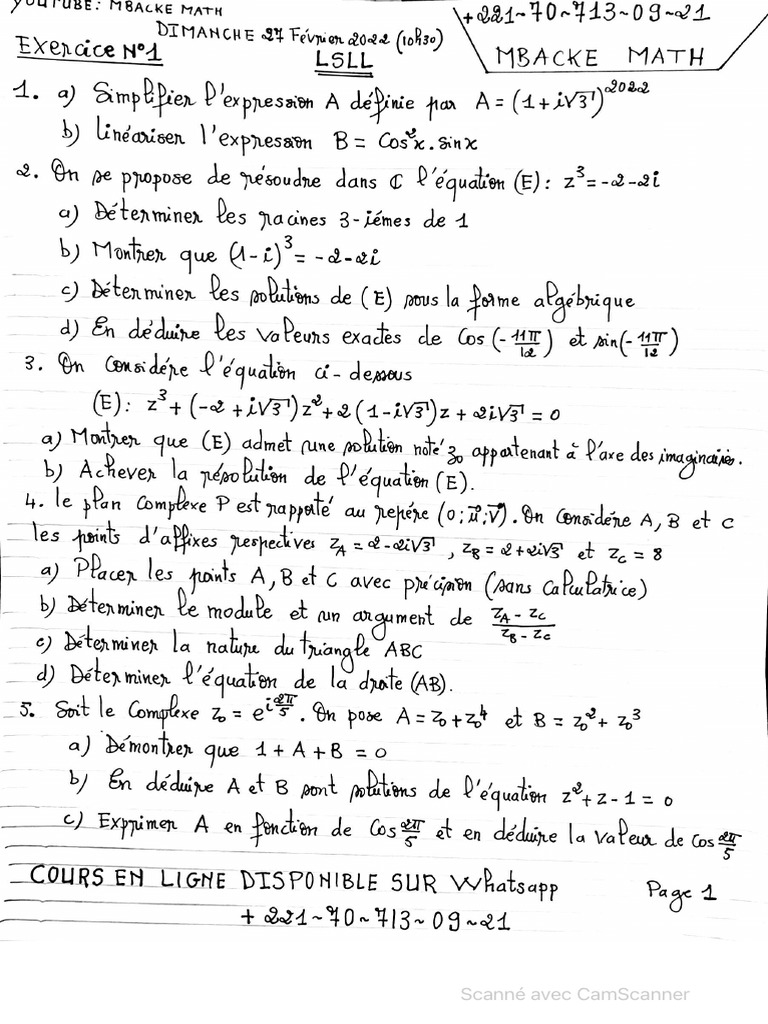 YOUTUBE: MBACKE MATH
+221~70~713~09~21
DIMANCHE 27 Février 2022 (10h30)
Exercice N°1
LSLL
MBACKE MATH
1. a) Simplifier l'expression A définie par A = (1+i√3)^2022
b) linéariser l'expression B = Cos²x.sinx
2. On se propose de résoudre dans ℂ l'équation (E): z³=-2-2i
a) Déterminer les racines 3-iémes de 1
b) Montrer que (1-i)³=-2-2i
c) Déterminer les solutions de (E) sous la forme algébrique
d) En déduire les valeurs exactes de Cos(-11π/12) et sin(-11π/12)
3. On considére l'équation ci-dessous
(E): z³+(-2+i√3)z²+2(1-i√3)z+2i√3=0
a) Montrer que (E) admet une solution noté z₀ appartenant à l'axe des imaginaires.
b) Achever la résolution de l'équation (E).
4. le plan Complexe P est rapporté au repére (0;u⃗;v⃗). On Considére A, B et C
les points d'affixes respectives z_A=2-2i√3, z_B=2+2i√3 et z_C=8
a) Placer les points A, B et C avec précision (sans Calculatrice)
b) Déterminer le module et un argument de (z_A-z_C)/(z_B-z_C)
c) Déterminer la nature du triangle ABC
d) Déterminer l'équation de la droite (AB).
5. Soit le Complexe z₀=e^(i2π/5). On pose A=z₀+z₀⁴ et B=z₀²+z₀³
a) Démontrer que 1+A+B=0
b) En déduire A et B sont solutions de l'équation z²+z-1=0
c) Exprimer A en fonction de Cos2π/5 et en déduire la valeur de cos2π/5
COURS EN LIGNE DISPONIBLE SUR Whatsapp
Page 1
+221~70~713~09~21
Scanné avec CamScanner